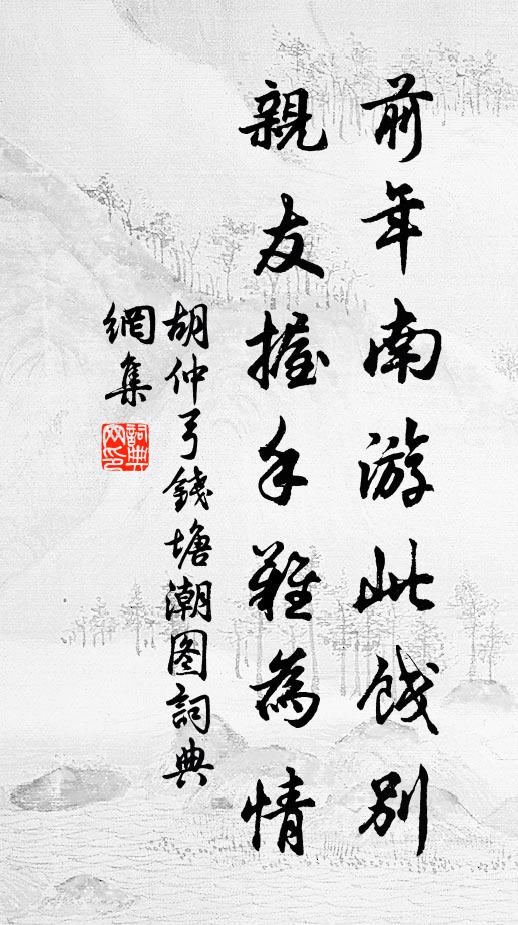 前年南游此餞别
親友握手難為情
胡仲弓錢塘潮图詞典
網集
詞典網印